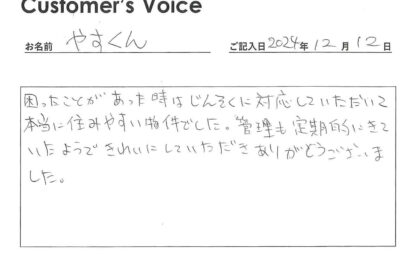 Customer's Voice
お名前 やすくん ご記入日 2024年 12月 12日
困ったことがあった時はじんそくに対応していただいて
本当に住みやすい物件でした。管理も定期的にきて
いたようできれいにしていただきありがとうございま
した。